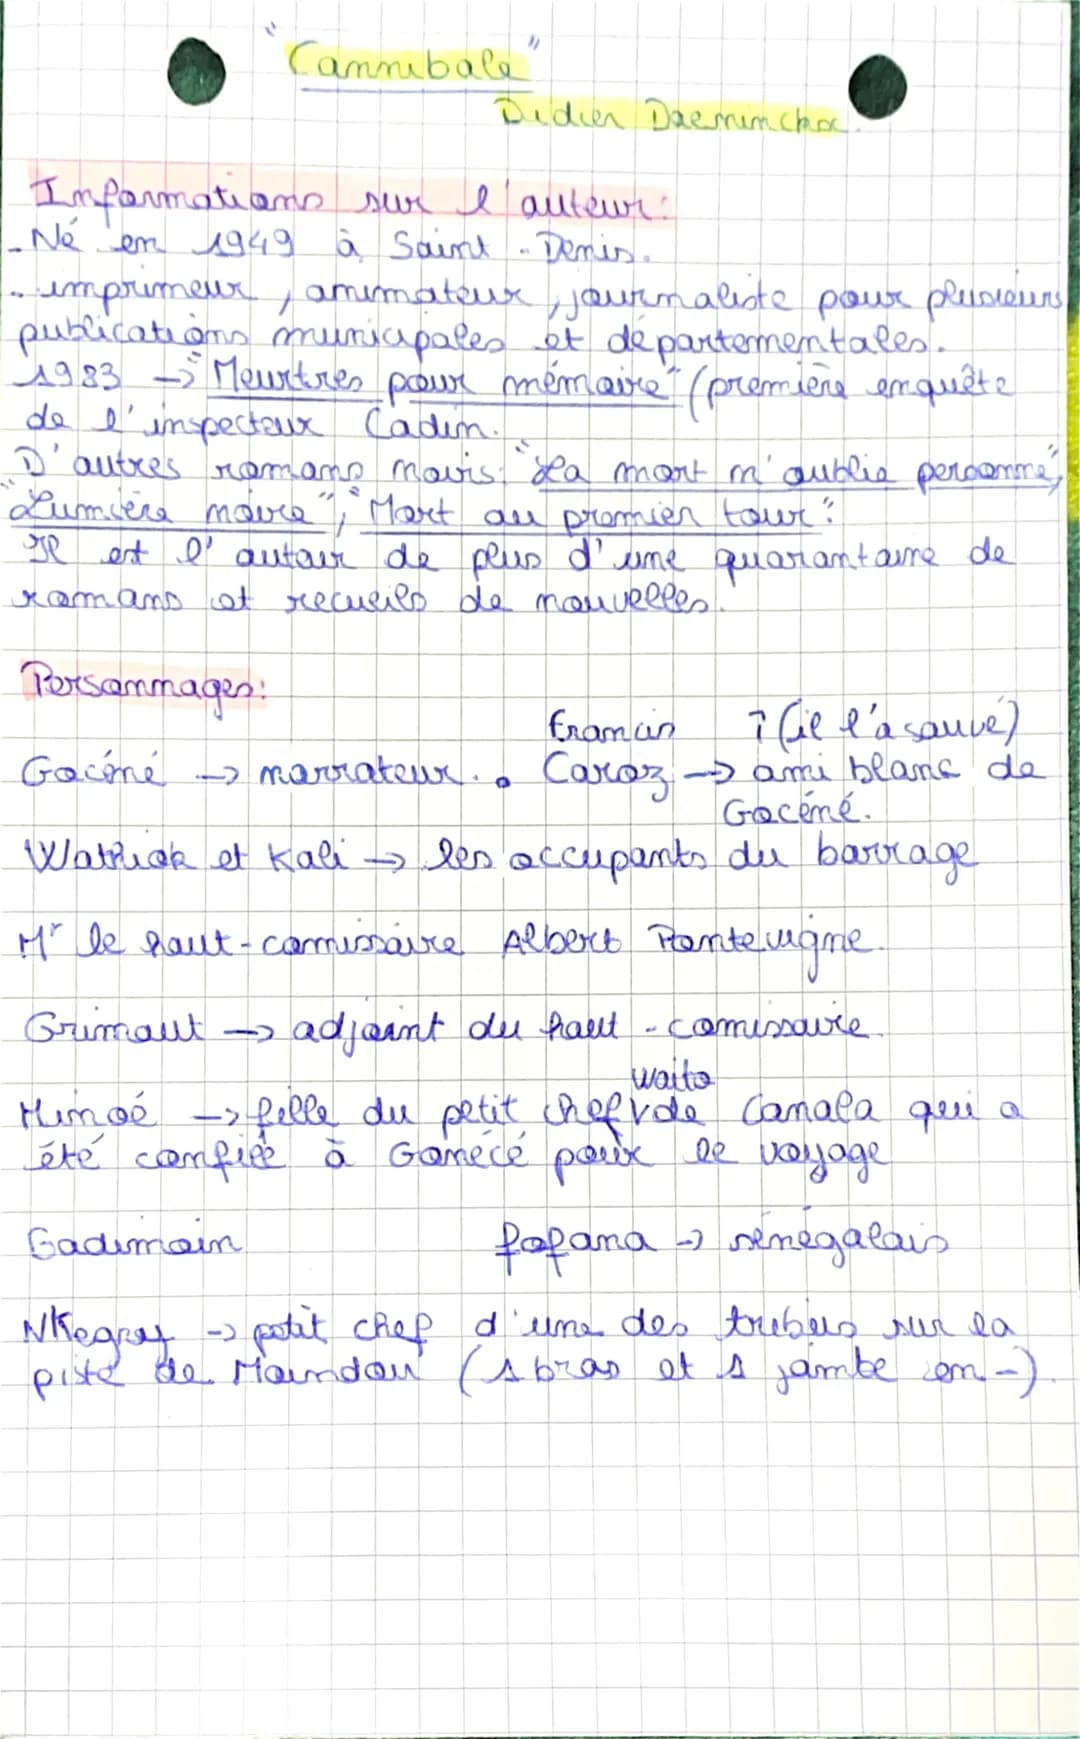 "Cannibale"
Didier Daeninckx.
Informations sur l'auteur:
- Né en 1949 à Saint-Denis.
- imprimeur, animateur, journaliste pour plusieurs
publications municipales et départementales.
1983 → "Meurtres pour mémoire" (première enquête
de l'inspecteur Cadin.
D'autres romans noirs: "La mort n'oublie personne",
"Lumière noire", "Mort au premier tour".
Il est l'autair de plus d'une quarantaine de
romans et recueils de nouvelles.
Personnages:
Francis ↑ (il l'a sauvé)
Gocéné → narrateur. • Caroz → ami blanc de
Gocéné.
Wathiok et Kali → les occupants du barrage
Mr le haut-comissaire Albert Pontevigne.
Grimaut → adjoint du haut-comissaire.
Waito
Minoé → fille du petit chef de Canala qui a
été confiée à Gonécé pour le voyage
Badimoin fofana → sénégalais
NKegny → petit chef d'une des tribus sur la
piste de Moindou (1 bras et 1 jambe en -).